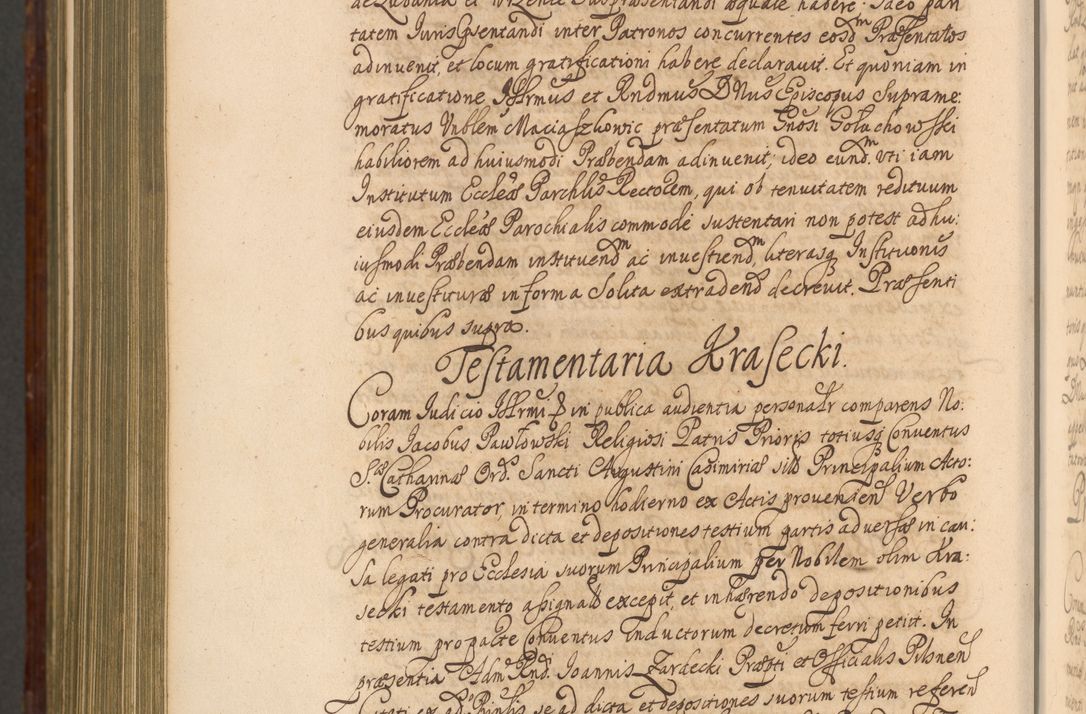 de Zubania et Wrzente Iuspraesentandi aequale habere. Ideo pari
tatem Iuris Pñtentandi inter Patronos concurrentes eosdm Praesentatos
adinvenit, et locum gratificationi habere declaravit. Et quoniam in
gratificatione Illrmus et Rndmus DNus Episcopus Suprame:
moratus Vnblem Maciaszkowic praesentatum Gnosi Golachowski
habiliorem ad huiusmodi Praebendam adinvenit; ideo eundm. uti iam
Institutum Eccleae Parchlis Rectorem, qui ob tenuitatem redituum
eiusdem Eccleae Parochialis commode sustentari non potest ad hu:
iusmodi Praebendam instituendm ac investiendm, literasq Institutionis
ac investiturae in forma Solita extradends decrevit. Praesenti
bus quibus supra.
Testamentaria Krasecki.
Coram Iudicio Illrmi & in publica audientia personalr comparens No:
bilis Jacobus Pawłowski Religiosi Patris Prioris totiusq Conventus
S.tae Catharinae Ord.s Sancti Augustini Casimiriae sitt Principalium Acto:
rum Procurator, in termino hodierno ex Actis provenienti Verbo
generalia contra dicta et depositiones testium partis adversae in cau:
sa legati pro Ecclesia suorum Principalium per Nobilem olim Kra:
secki testamento assignati excepit, et inhaerendo depositionibus
testium pro parte Conventus inductorum decretum ferri petiit. In
praesentia Adm Rndi Ioannis Zardecki Praepti et Officialis Pilsnen
Citati ex adto Principalis se ad dicta et depositiones suorum testium referen